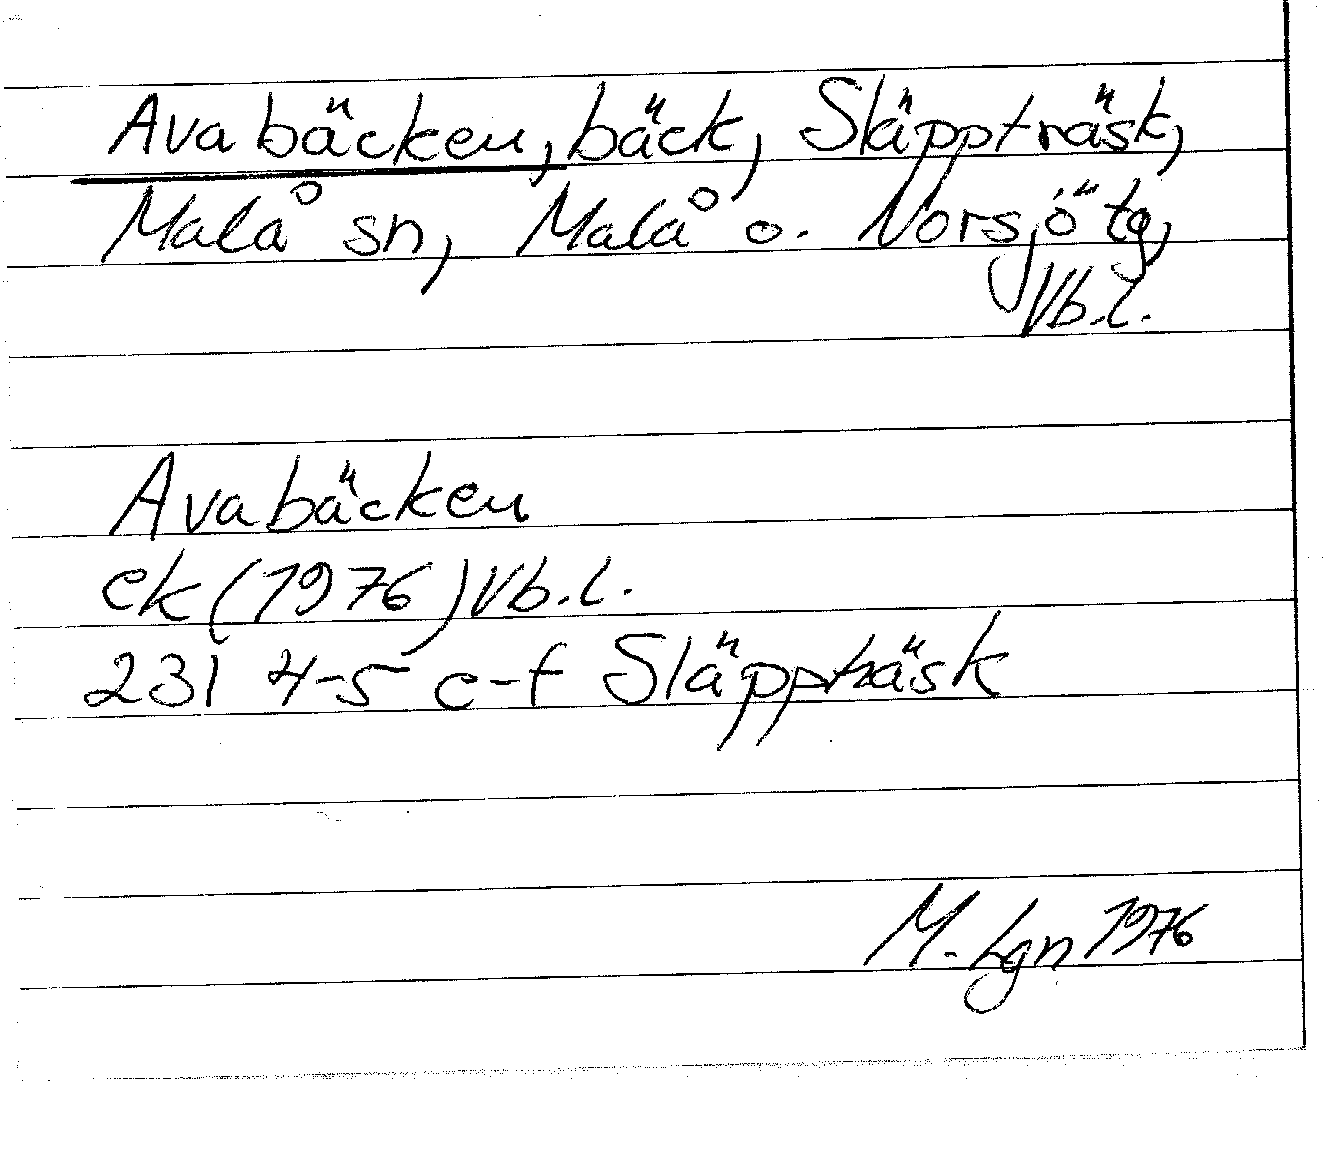 Avabäcken, bäck, Släppträsk,
Malå sn, Malå o. Norsjö tg,
Vb.l.
Avabäcken
ek (1976) Vb.l.
23I 4-5 c-f Släppträsk
M. Lgn 1976